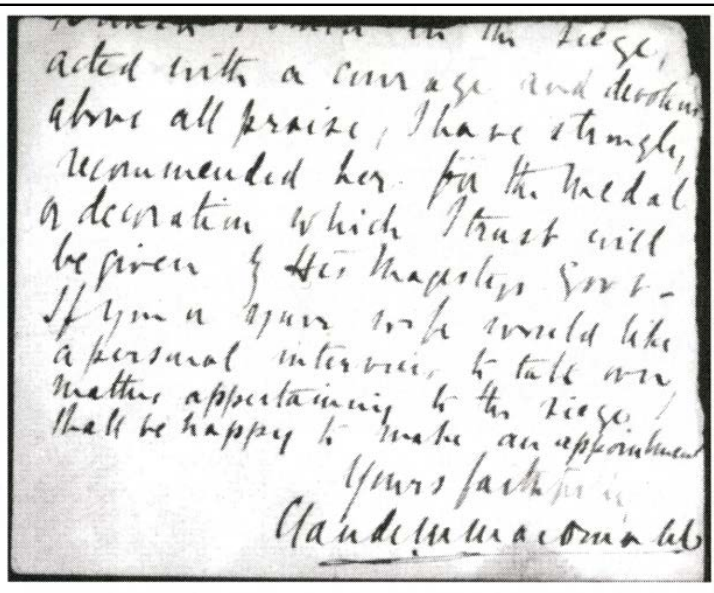 in the siege,
acted with a courage and devotion
above all praise, I have strongly
recommended her for the Medal
or decoration which I trust will
be given by His Majestys Govt -
If you or your wife would like
a personal interview to talk over
matters appertaining to the siege I
shall be happy to make an appointment
Yours faithfully
Claude M MacDonald